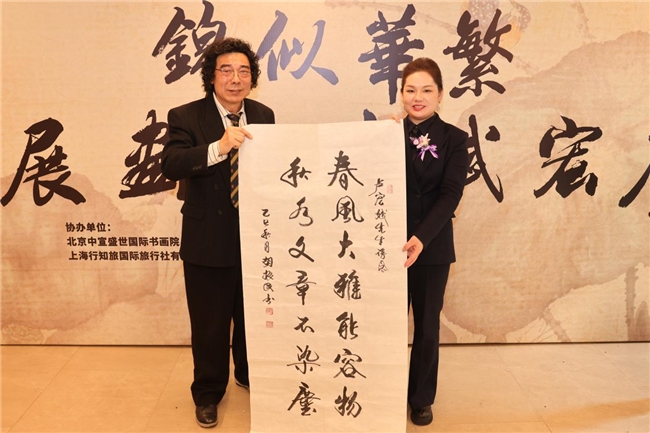 繁華似錦
宏斌
畫展
协办单位：
北京中宣盛世国际书画院
上海行知旅国际旅行社有
春風大雅能容物
秋水文章不染塵
乙巳 月胡振民书